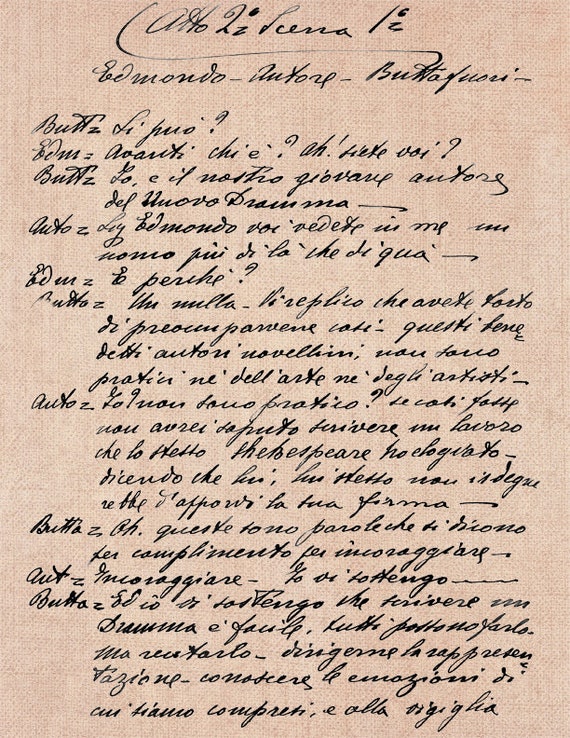 Atto 2º Scena 1ª
Edmondo - Autore - Buttafuori -
Butt= Si può?
Edm= Avanti chi è? Ah! siete voi?
Butt= Io, e il nostro giovane autore
del Nuovo Dramma —
Auto= Sig Edmondo voi vedete in me un
uomo più di là che di quà —
Edm= E perché?
Butta= Un nulla - Vi replico che avete torto
di preocuparvene così - questi bene=
detti autori novellini, non sono
pratici nè dell'arte nè degli artisti -
Auto= Io? non sono pratico? se così fosse
non avrei saputo scrivere un lavoro
che lo stesso Shekespeare ha elogiato -
dicendo che lui, lui stesso non isdegne
rebbe d'apporvi la sua firma —
Butta= Oh. queste sono parole che si dicono
per complimento per incoraggiare -
Aut= Incoraggiare - Io vi sostengo —
Butta= Ed io vi sostengo che scrivere un
Dramma è facile, tutti possono farlo -
ma recitarlo - dirigerne la rappresen=
tazione - conoscere le emozioni di
cui siamo compresi, e alla vigiglia